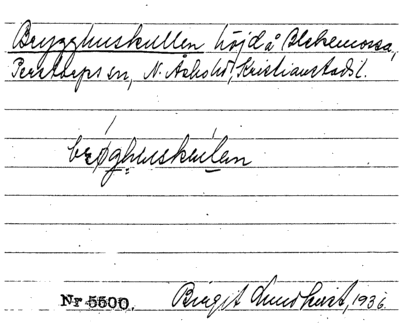 Brygghuskullen höjd å Blekemossa,
Perstorps sn, N. Åsbo hd, Kristianstads l.
brøghuskulen
Nr 5500. Birgit Lundkvist, 1936.